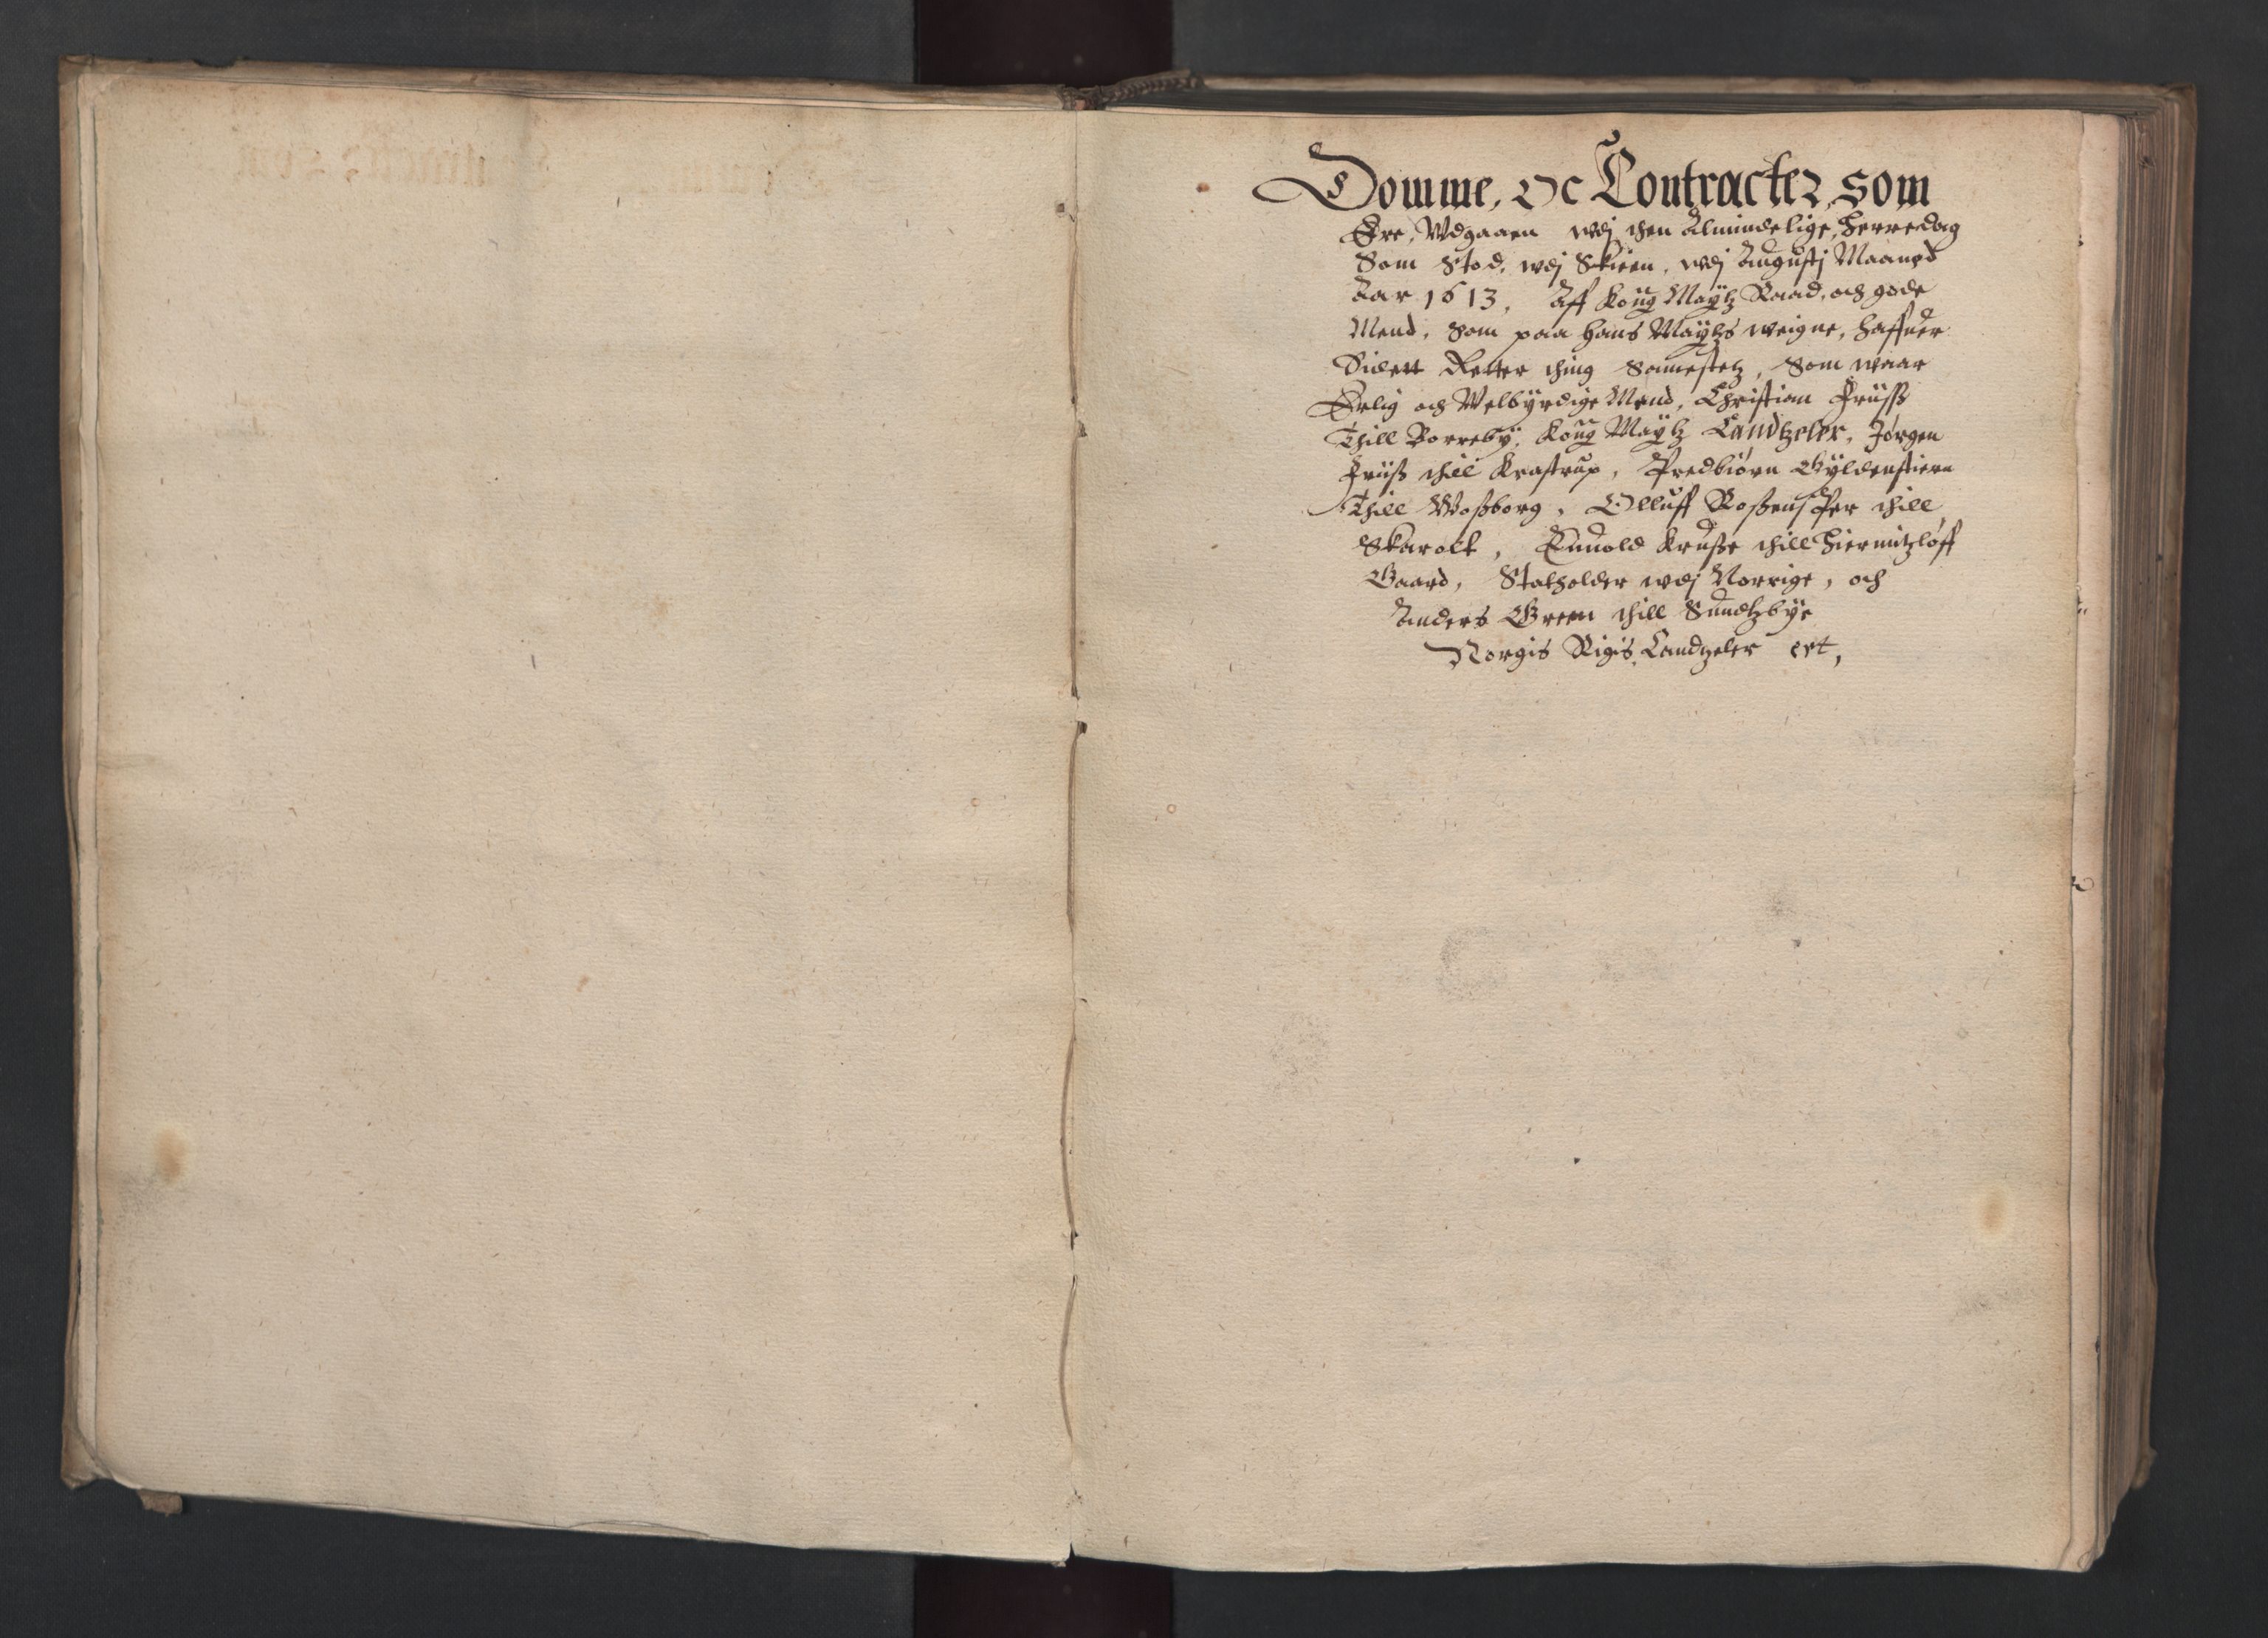 Domme, oc Contracter, som
Ere, Wdgaaen wdj then Almindelige, Herredag
Som Stod, wdj Skieen, wdj Augustj Maaned
Aar 1613, Aff Kong Maÿtz Raad, och gode
Mend, som paa hans Maÿtz weigne, haffuer
Sidett Retter thing Sammestetz, Som waar
Erlig och Welbÿrdige Mend, Christian Friiss
Thill Borrebÿ, Kong Maÿtz Candtzeler, Jørgen
Friiss thill Krastrup, Predbiørn Gÿldenstiern
Thill Wossborg, Olluff Rossensper thill
Skarolt, Enuold Krusse thill Hiermitzløff
Gaard, Statholder wdj Norrige, och
Anders Green thill Sundtzbÿe
Norgis Rigis Candtzeler ect,